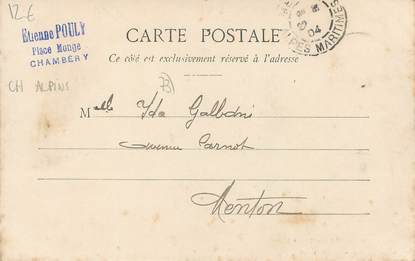 12€
Etienne POULY
Place Monge
CHAMBÉRY
CH ALPINS
73
CARTE POSTALE
Ce côté est exclusivement réservé à l'adresse
04
PES MARITIMES
Melle Ida Galbdni
avenue Carnot
Menton